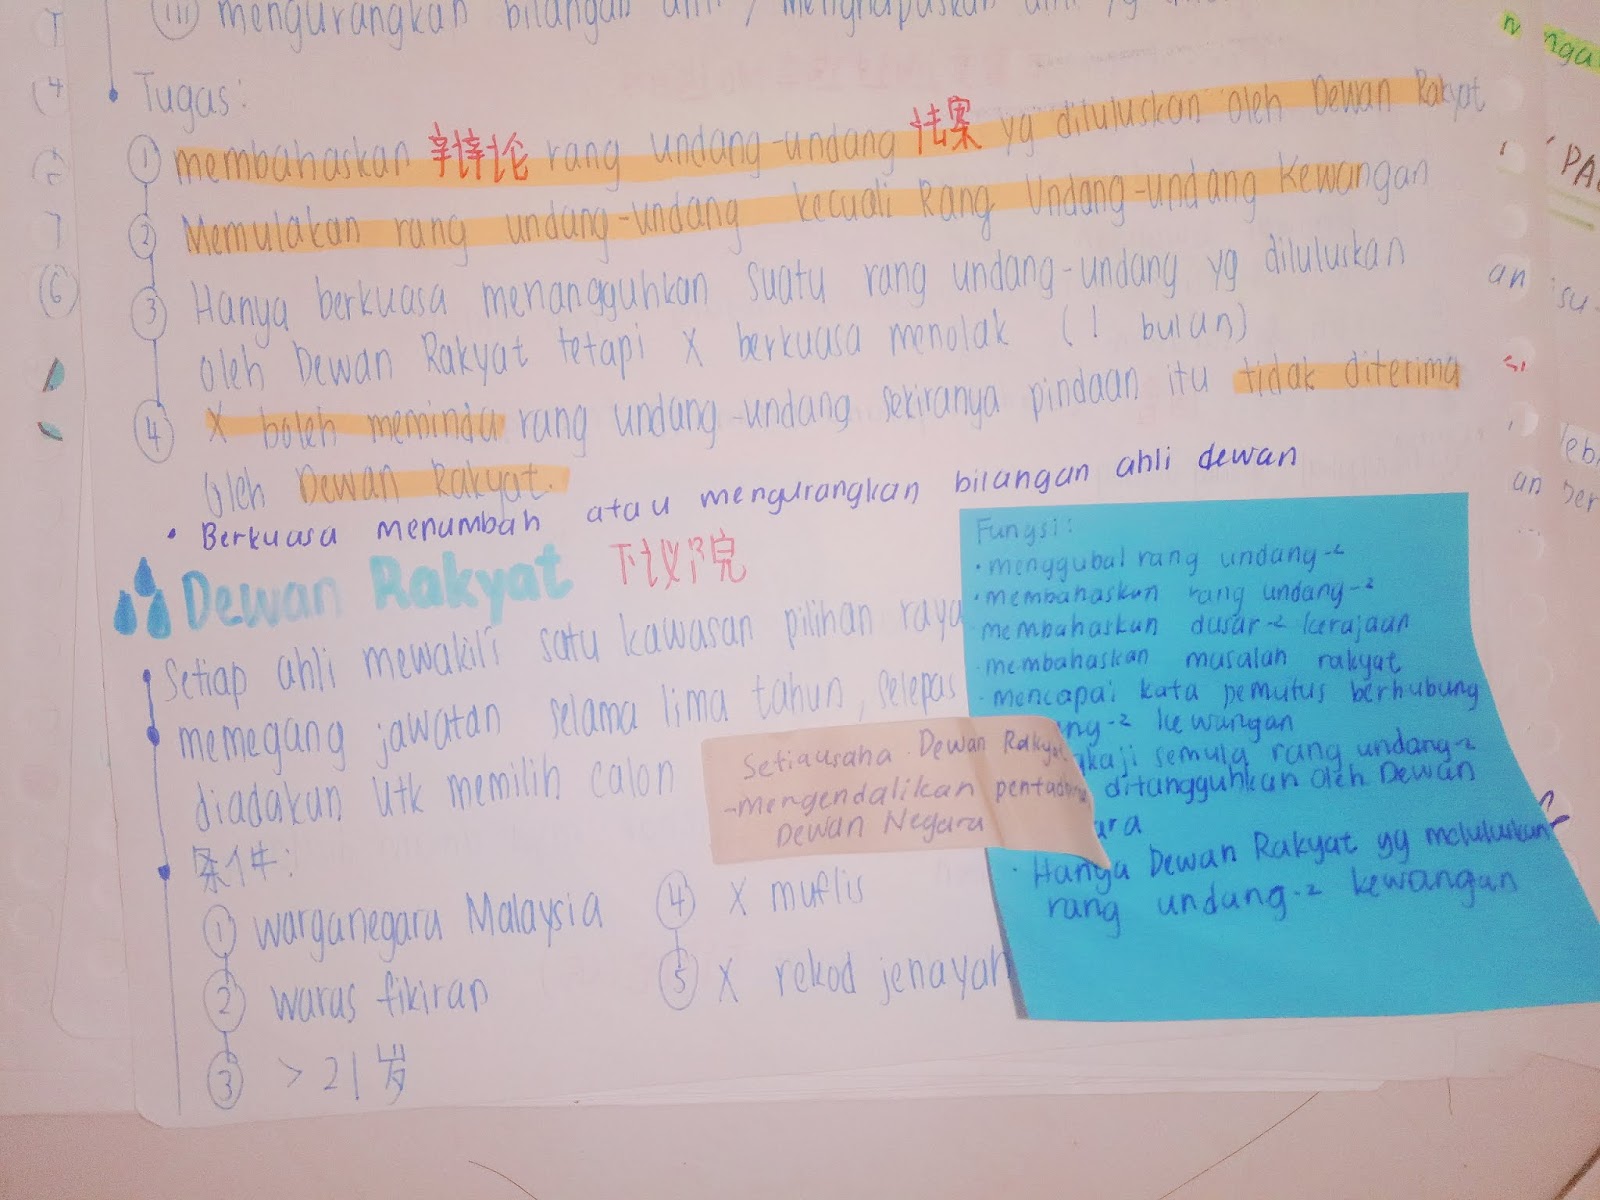 (iii) mengurangkan bilangan ahli / menghapuskan ahli yg
Tugas:
① membahaskan 辩论 rang undang-undang 法案 yg diluluskan oleh Dewan Rakyat
② Memulakan rang undang-undang kecuali Rang Undang-undang Kewangan
③ Hanya berkuasa menangguhkan suatu rang undang-undang yg diluluskan
oleh Dewan Rakyat tetapi X berkuasa menolak (1 bulan)
④ X boleh meminda rang undang-undang sekiranya pindaan itu tidak diterima
oleh Dewan Rakyat.
• Berkuasa menambah atau mengurangkan bilangan ahli dewan
Dewan Rakyat 下议院
Setiap ahli mewakili satu kawasan pilihan raya
memegang jawatan selama lima tahun, selepas
diadakan utk memilih calon
条件:
① warganegara Malaysia
② waras fikiran
③ > 21岁
④ X muflis
⑤ X rekod jenayah
Setiausaha Dewan Rakyat
-mengendalikan
Dewan Negara
Fungsi:
• menggubal rang undang-2
• membahaskan rang undang-2
membahaskan dasar-2 kerajaan
• membahaskan masalah rakyat
• mencapai kata pemutus berhubung
ng-2 kewangan
kaji semula rang undang-2
ditangguhkan oleh Dewan
ara
• Hanya Dewan Rakyat yg meluluskan
rang undang-2 kewangan
(6)
an
an